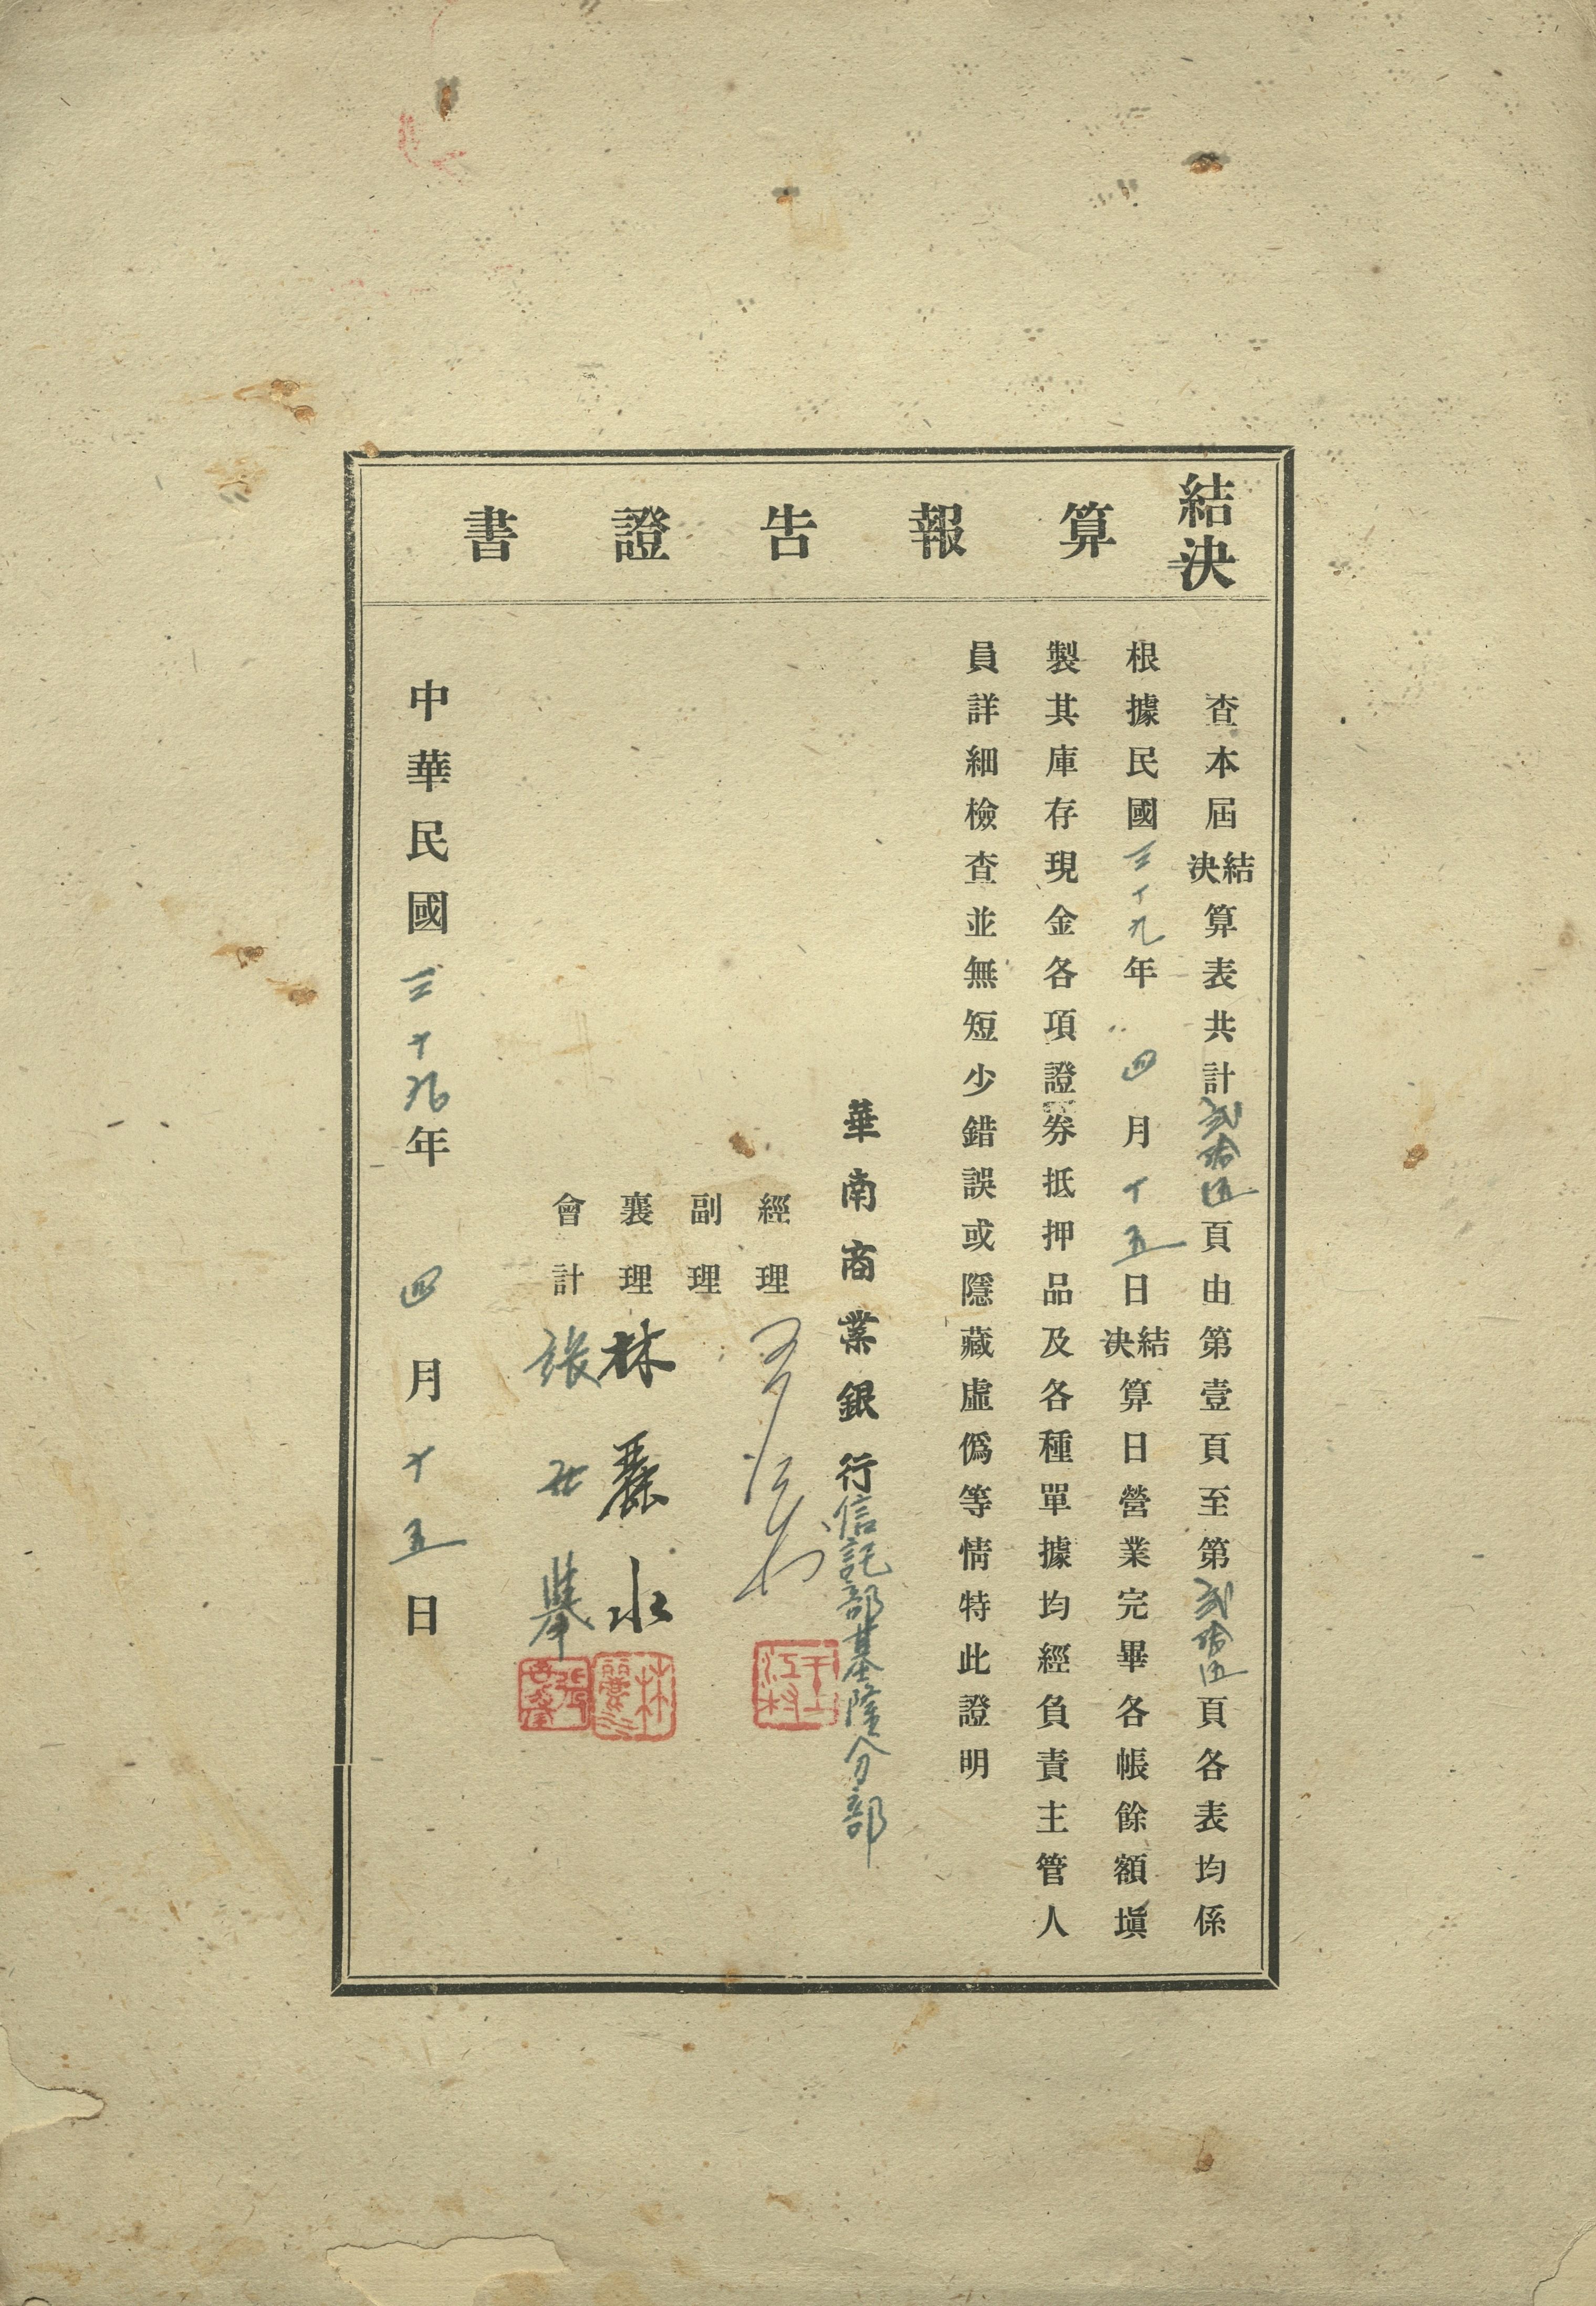 結決算報告證書
查本屆結決算表共計貳拾伍頁由第壹頁至第貳拾伍頁各表均係
根據民國三十九年四月十五日結決算日營業完畢各帳餘額塡
製其庫存現金各項證券抵押品及各種單據均經負責主管人
員詳細檢查並無短少錯誤或隱藏虛僞等情特此證明
華南商業銀行信託部基隆分部
經理
副理
襄理 林麗水
會計 張世舉
中華民國三十九年四月十五日